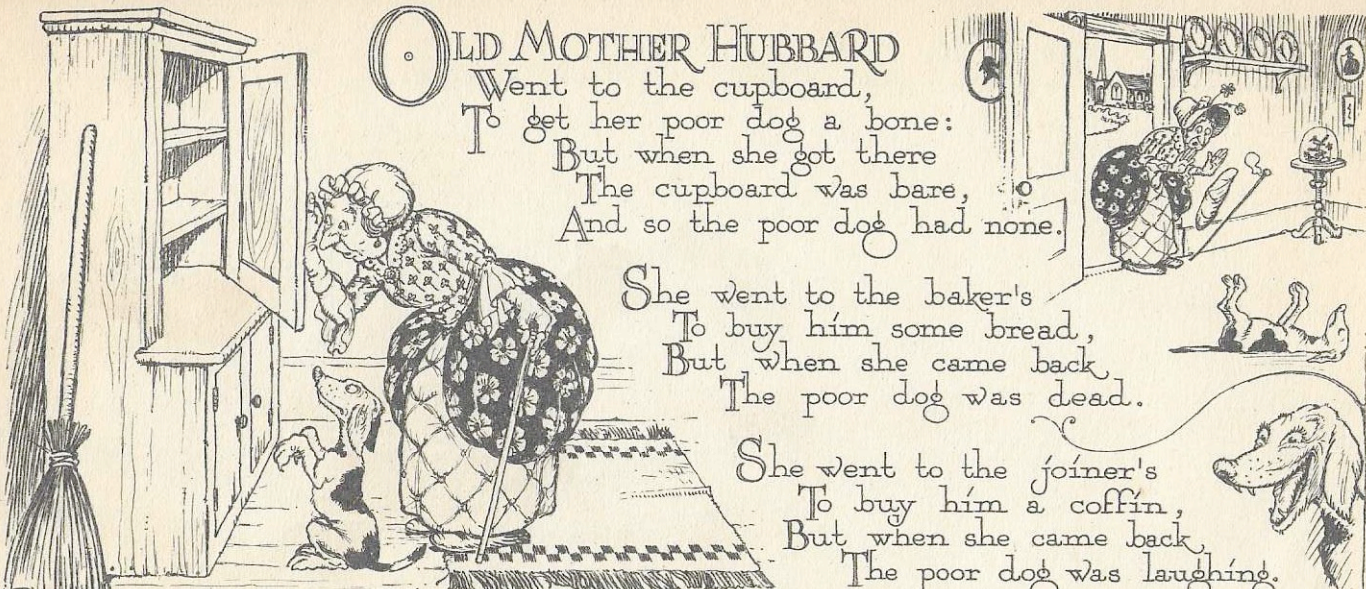 OLD MOTHER HUBBARD
Went to the cupboard,
To get her poor dog a bone:
But when she got there
The cupboard was bare,
And so the poor dog had none.
She went to the baker's
To buy him some bread,
But when she came back
The poor dog was dead.
She went to the joiner's
To buy him a coffin,
But when she came back,
The poor dog was laughing.